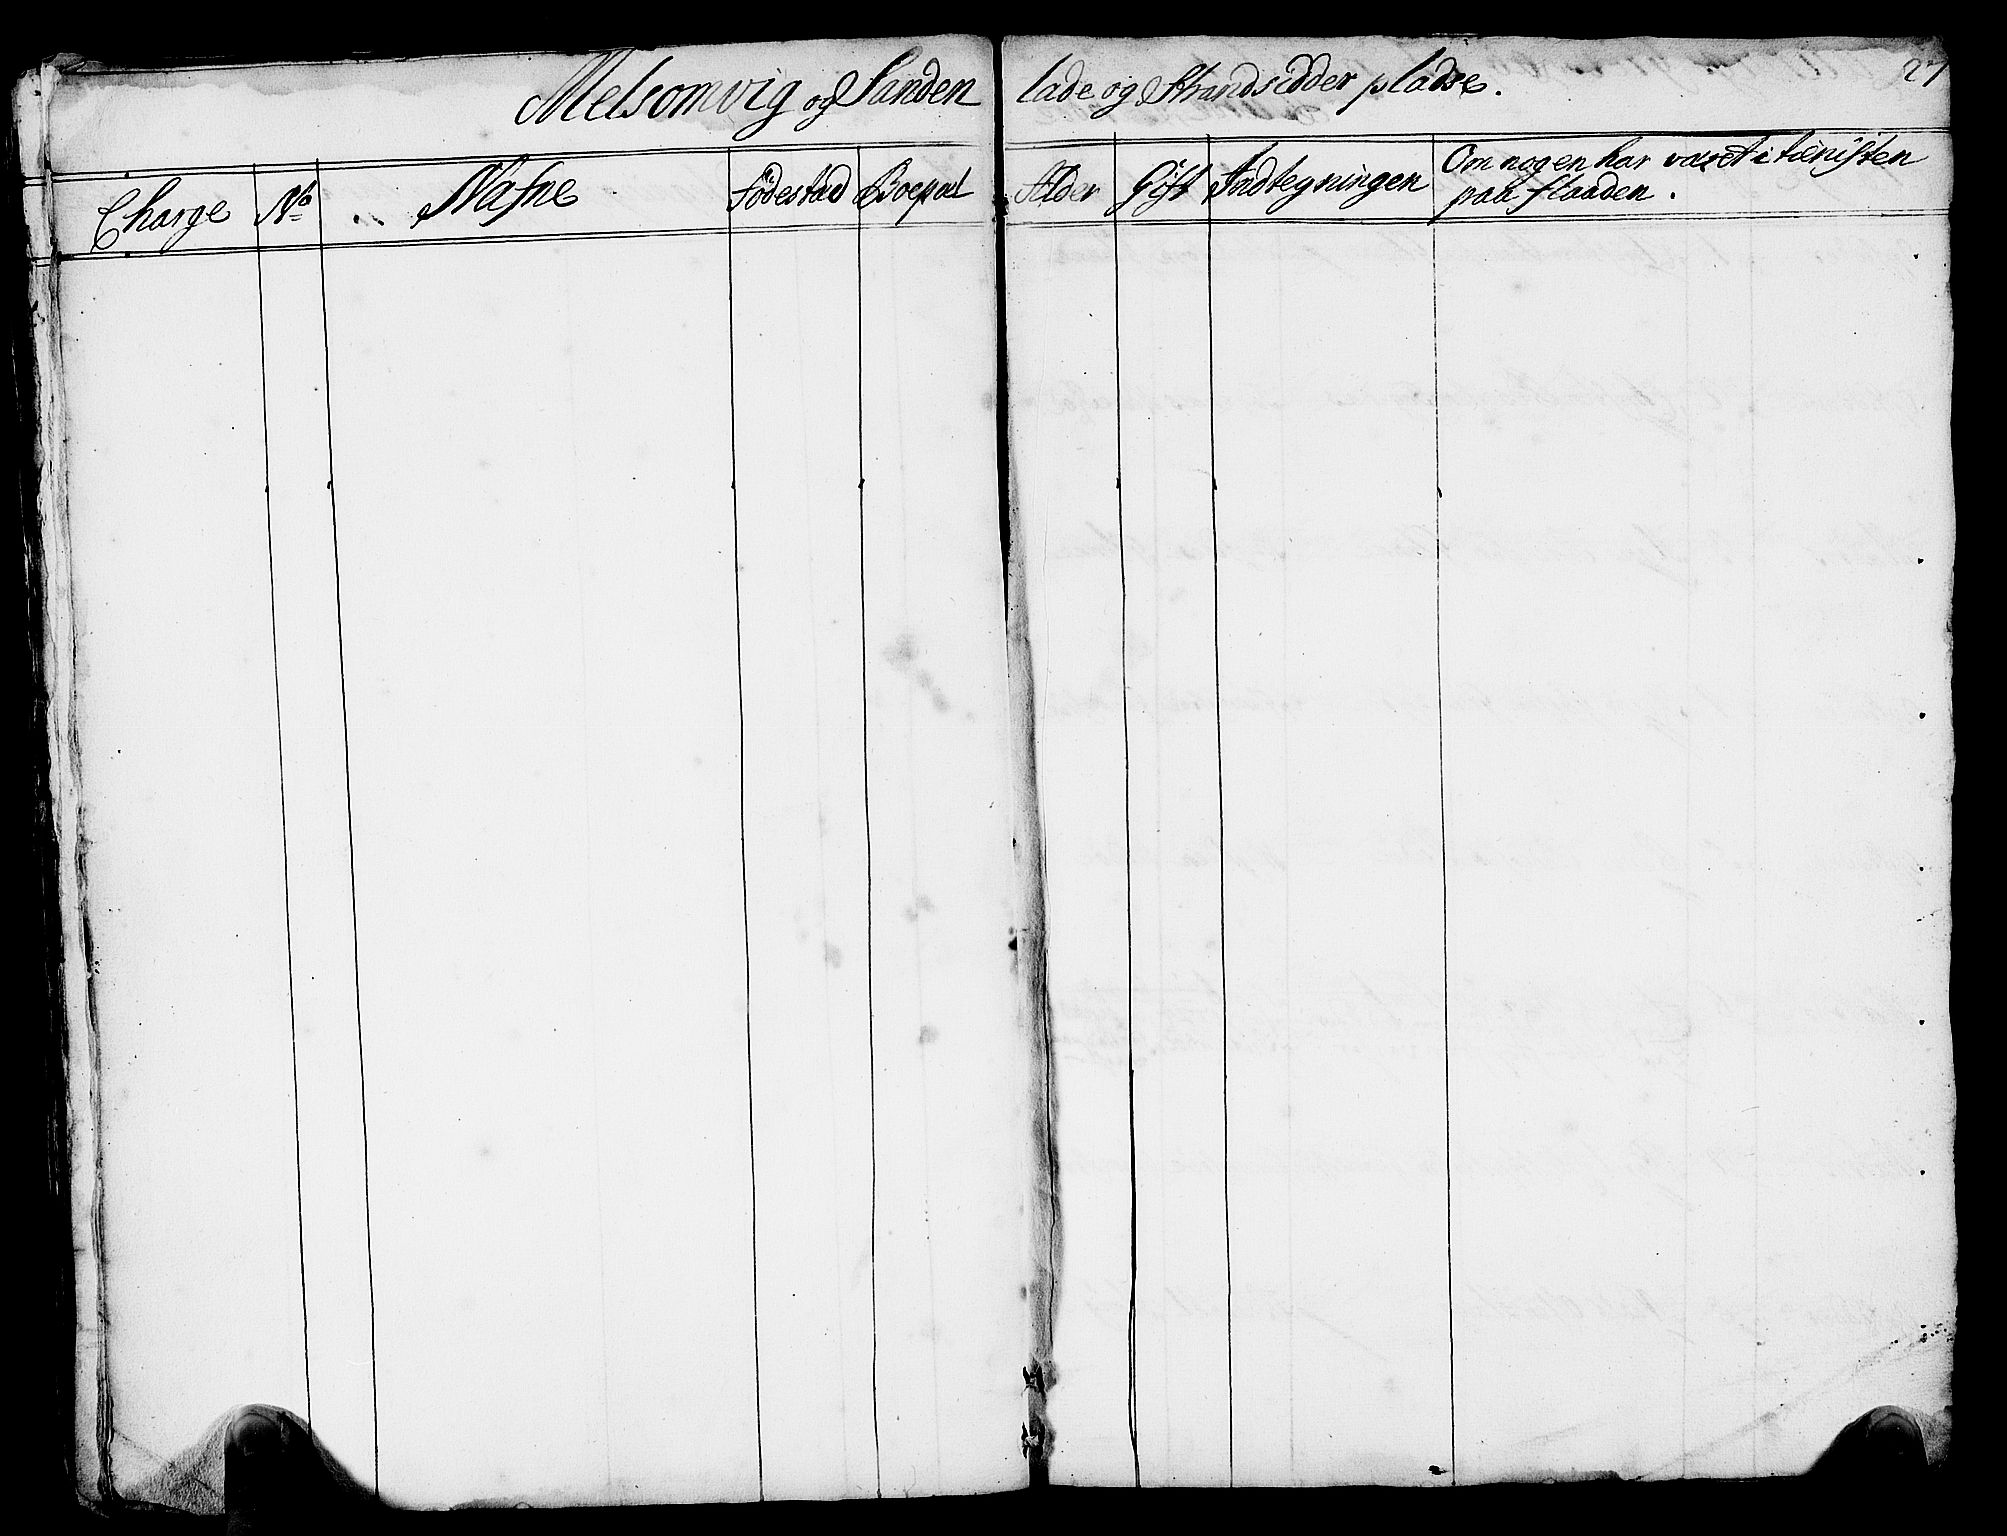 Melsomvig og Sanden lade og Strandsidder pladse. 27
Charge No Nafne Fødestad Boepæl Alder Gift Indtegningen Om nogen har været i tienisten
paa flaaden.